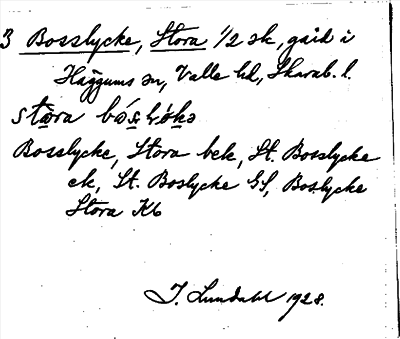 3 Bosslycke, Stora 1/2 sk, gård i
Häggums sn, Valle hd, Skarab. l.
stɷra
Bosslycke, Stora bek, St. Bosslycke
ek, St. Boslycke GS, Boslycke
Stora Kb
J. Lundahl 1928.